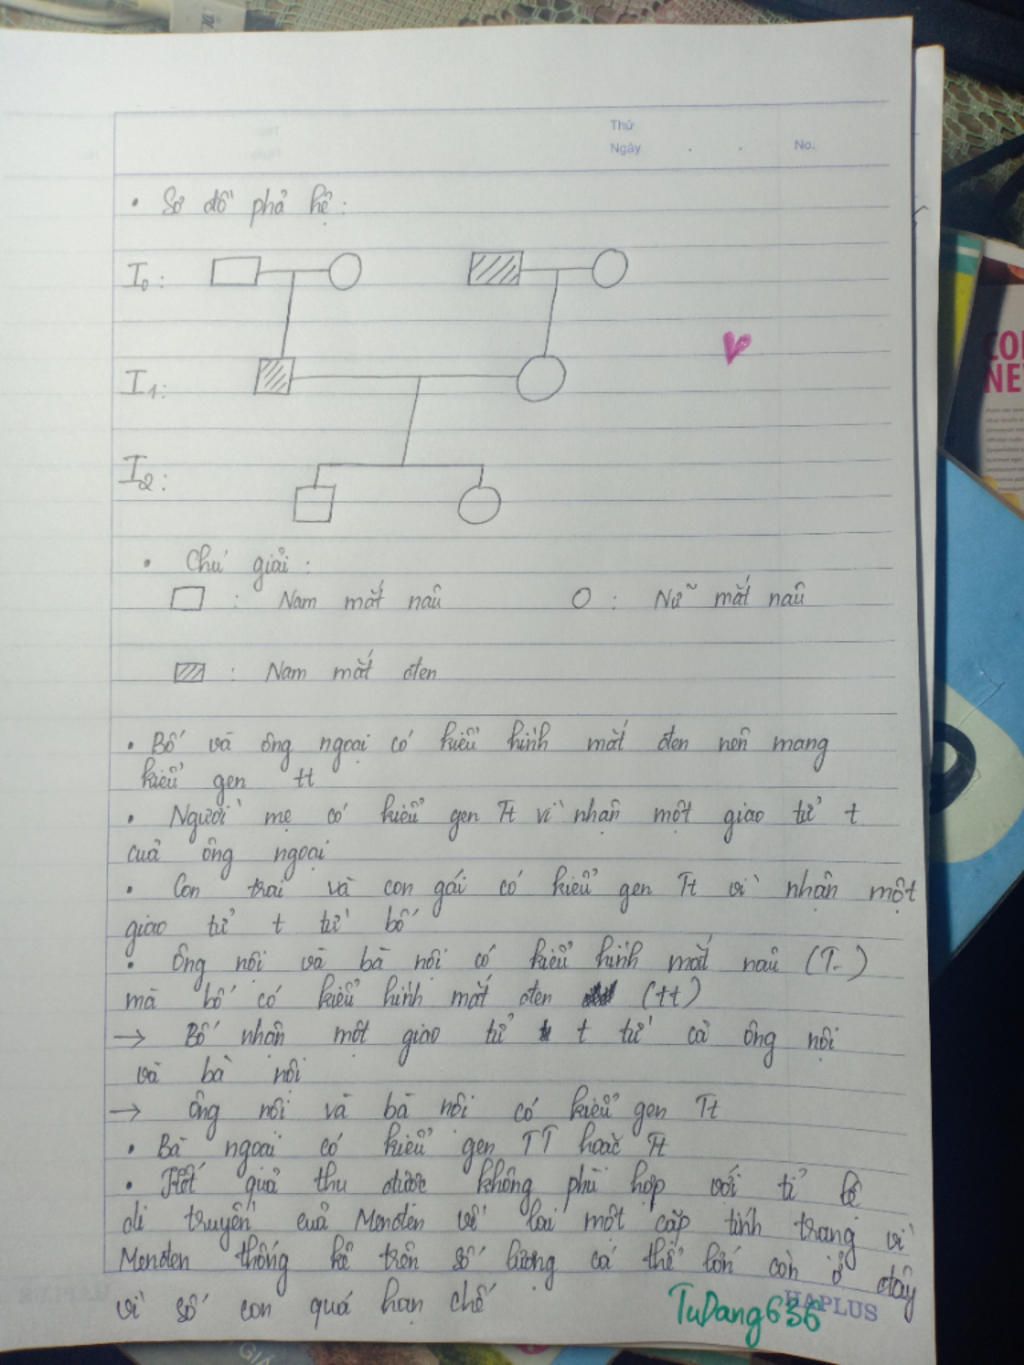 Thứ
Ngày . . No.
• Sơ đồ phả hệ:
I₀:
I₁:
I₂:
• Chú giải:
: Nam mắt nâu : Nữ mắt nâu
: Nam mắt đen
• Bố và ông ngoại có kiểu hình mắt đen nên mang
kiểu gen tt
• Người mẹ có kiểu gen Tt vì nhận một giao tử t
của ông ngoại
• Con trai và con gái có kiểu gen Tt vì nhận một
giao tử t từ bố
• Ông nội và bà nội có kiểu hình mắt nâu (T-)
mà bố có kiểu hình mắt đen (tt)
→ Bố nhận một giao tử t từ cả ông nội
và bà nội
→ ông nội và bà nội có kiểu gen Tt
• Bà ngoại có kiểu gen TT hoặc Tt
• Kết quả thu được không phù hợp với tỉ lệ
di truyền của Menđen về lai một cặp tính trạng vì
Menđen thống kê trên số lượng cá thể lớn còn ở đây
vì số con quá hạn chế
HAPLUS
TuDang636
COI
NE